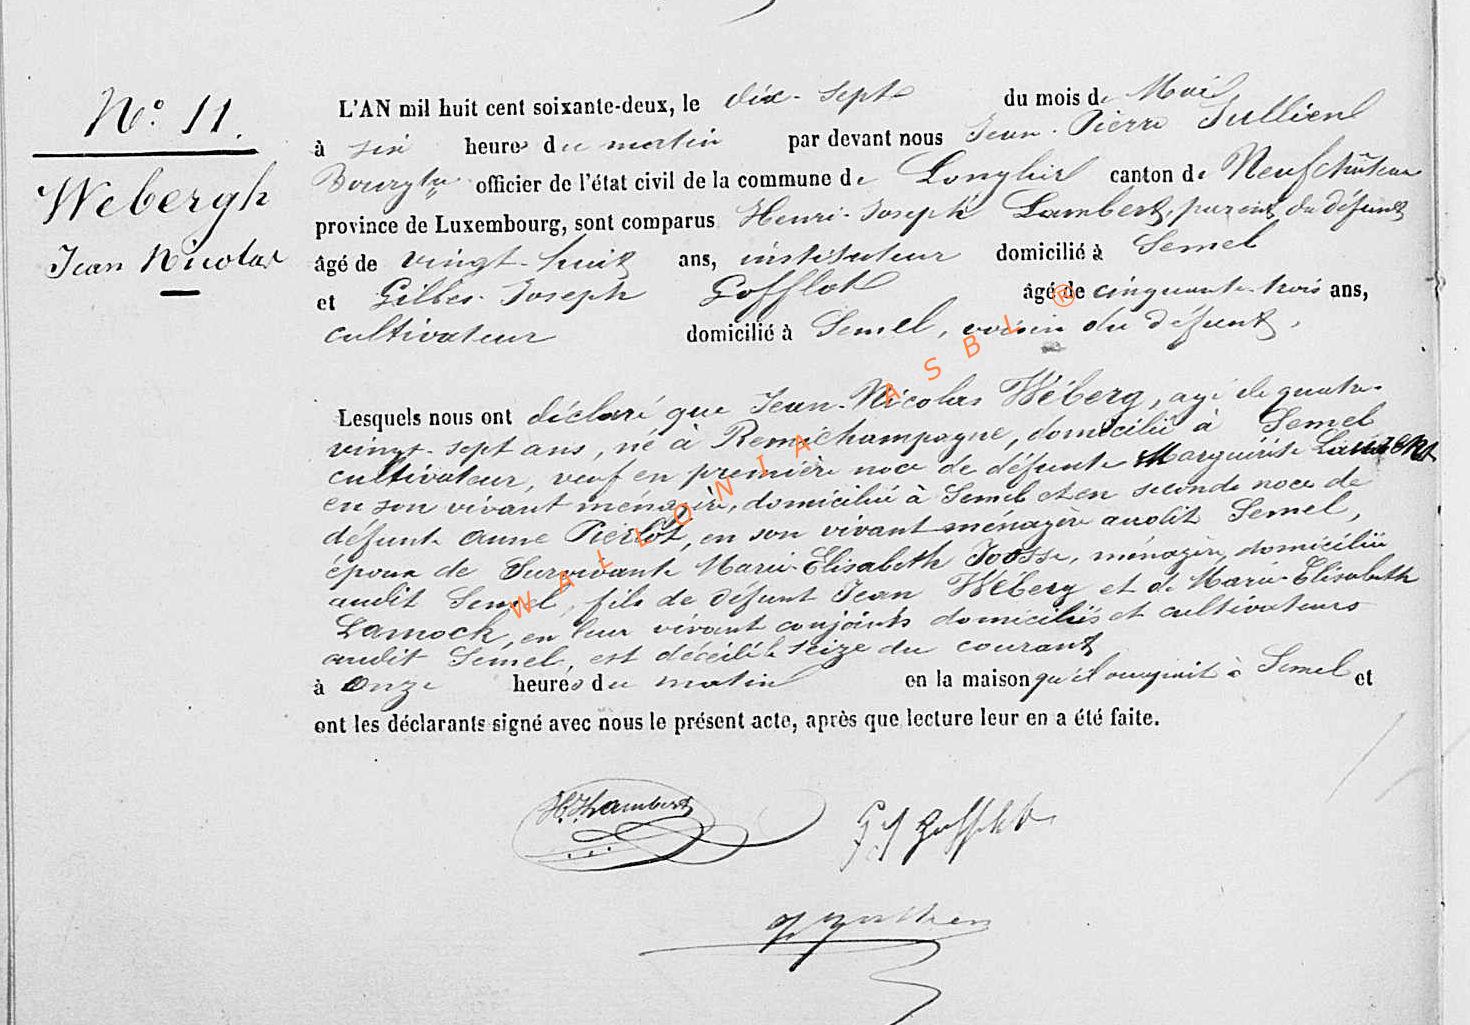 N.° 11.
Webergh
Jean Nicolas
L'AN mil huit cent soixante-deux, le dix-sept du mois de Mai
à six heures du matin par devant nous Jean-Pierre Jullien
Bourgtre officier de l'état civil de la commune de Longlier canton de Neufchâteau
province de Luxembourg, sont comparus Henri-Joseph Lambert, parent du défunt
âgé de vingt-huit ans, instituteur domicilié à Semel
et Gilles-Joseph Gofflot âgé de cinquante-trois ans,
cultivateur domicilié à Semel, voisin du défunt,
Lesquels nous ont déclaré que Jean-Nicolas Wéberg, agé de quatre-
vingt-sept ans, né à Remichampagne, domicilié à Semel
cultivateur, veuf en première noce de défunte Marguérite
en son vivant ménagère, domiciliée à Semel et en seconde noce de
défunte Anne Pierlot, en son vivant ménagère audit Semel,
époux de Survivante Marie-Elisabeth Joosse, ménagère, domiciliée
audit Semel, fils de défunt Jean Wéberg et de Marie-Elisabeth
Lamock, en leur vivant conjoints domiciliés et cultivateurs
audit Semel, est décédé le seize du courant
à onze heures du matin en la maison qu'il occupait à Semel et
ont les déclarants signé avec nous le présent acte, après que lecture leur en a été faite.
H.J. Lambert
G J Gofflot
WALLONIA ASBL ®